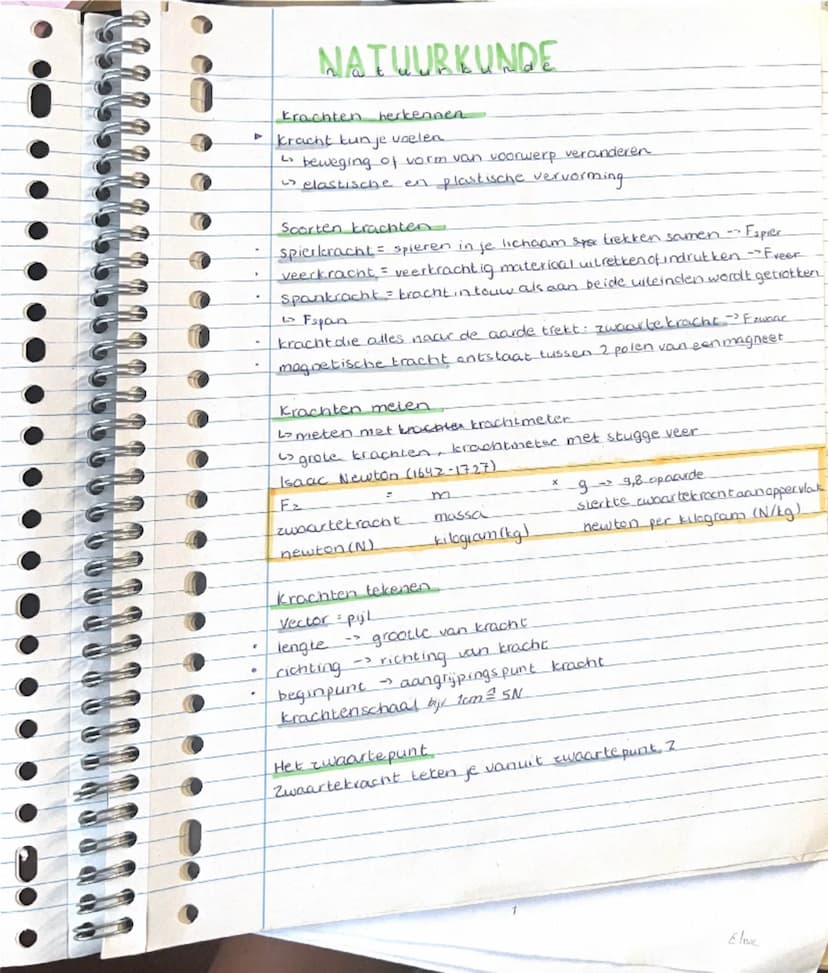 NATUURKUNDE
natuurkunde
Krachten herkennen
▸ kracht kun je voelen
↳ beweging of vorm van voorwerp veranderen
↳ elastische en plastische vervorming
Soorten krachten
• spierkracht = spieren in je lichaam trekken samen --> Fspier
• veerkracht = veerkrachtig materiaal uitrekken of indrukken --> Fveer
• spankracht = kracht in touw als aan beide uiteinden wordt getrokken
↳ Fspan
• kracht die alles naar de aarde trekt: zwaartekracht --> Fzwaar
• magnetische kracht ontstaat tussen 2 polen van een magneet
Krachten meten
↳ meten met krachten krachtmeter
↳ grote krachten, krachtmeter met stugge veer
Isaac Newton (1642-1727)
Fz = m × g --> 9,8 op aarde
zwaartekracht massa sterkte zwaartekracht aan oppervlak
newton (N) kilogram (kg) newton per kilogram (N/kg)
Krachten tekenen
Vector = pijl
• lengte --> grootte van kracht
• richting --> richting van kracht
• beginpunt --> aangrijpingspunt kracht
krachtenschaal bijv 1cm ≙ 5N
Het zwaartepunt
Zwaartekracht teken je vanuit zwaartepunt, Z
1